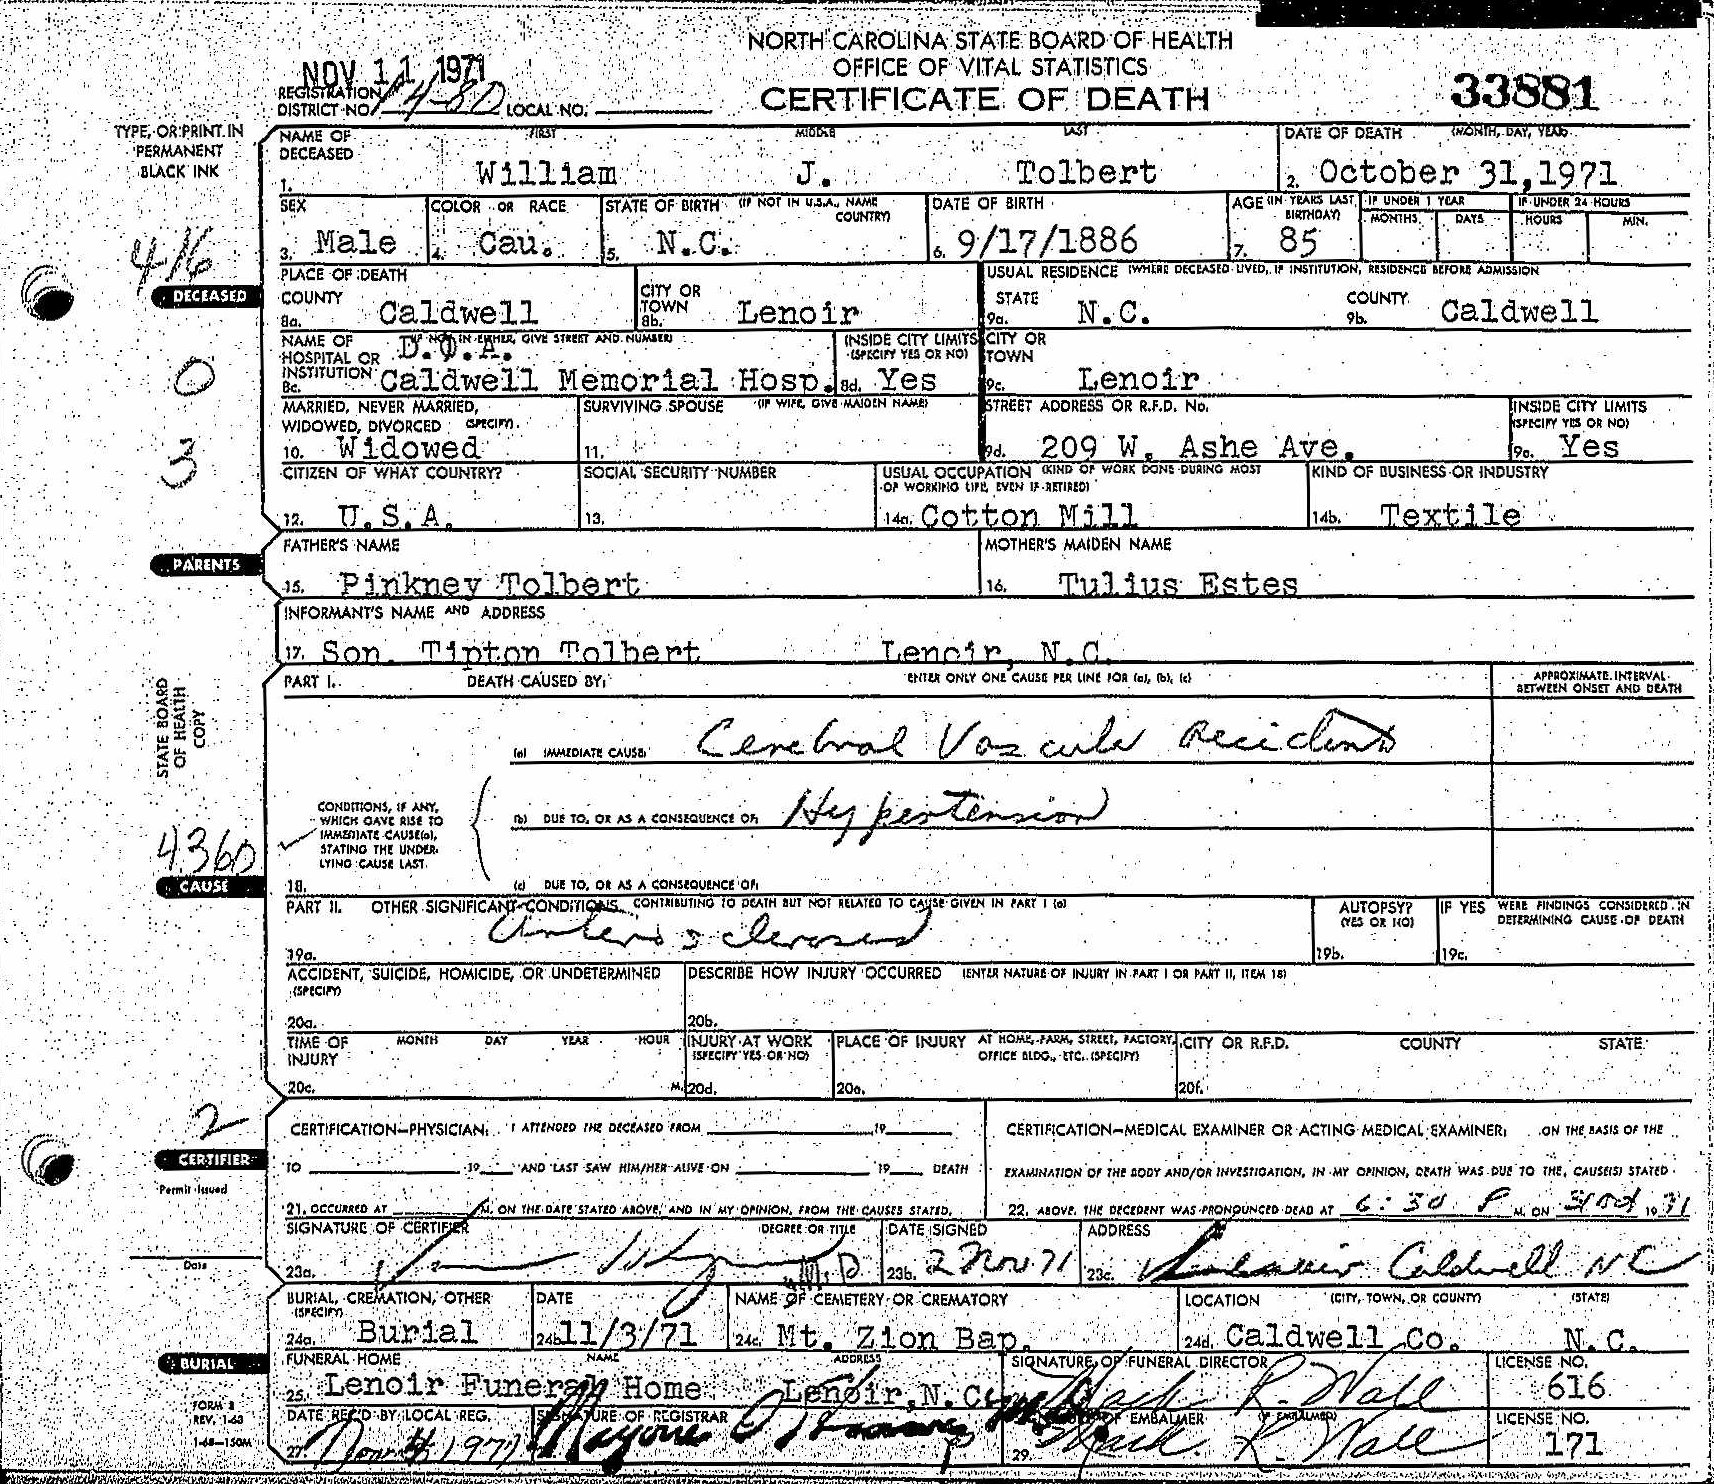 NORTH CAROLINA STATE BOARD OF HEALTH
OFFICE OF VITAL STATISTICS
CERTIFICATE OF DEATH
33881
NOV 11 1971
REGISTRATION DISTRICT NO. 14-80 LOCAL NO.
TYPE, OR PRINT IN
PERMANENT
BLACK INK
NAME OF DECEASED FIRST MIDDLE LAST DATE OF DEATH (MONTH, DAY, YEAR)
1. William J. Tolbert 2. October 31, 1971
SEX COLOR OR RACE STATE OF BIRTH (IF NOT IN U.S.A., NAME COUNTRY) DATE OF BIRTH AGE (IN YEARS LAST BIRTHDAY) IF UNDER 1 YEAR IF UNDER 24 HOURS
MONTHS DAYS HOURS MIN.
3. Male 4. Cau. 5. N.C. 6. 9/17/1886 7. 85
416
DECEASED
PLACE OF DEATH USUAL RESIDENCE (WHERE DECEASED LIVED, IF INSTITUTION, RESIDENCE BEFORE ADMISSION
COUNTY CITY OR TOWN STATE COUNTY
8a. Caldwell 8b. Lenoir 9a. N.C. 9b. Caldwell
NAME OF HOSPITAL OR INSTITUTION (IF NOT IN EITHER, GIVE STREET AND NUMBER) INSIDE CITY LIMITS (SPECIFY YES OR NO) CITY OR TOWN
D.O.A.
8c. Caldwell Memorial Hosp. 8d. Yes 9c. Lenoir
0
3
MARRIED, NEVER MARRIED, WIDOWED, DIVORCED (SPECIFY) SURVIVING SPOUSE (IF WIFE, GIVE MAIDEN NAME) STREET ADDRESS OR R.F.D. No. INSIDE CITY LIMITS (SPECIFY YES OR NO)
10. Widowed 11. 9d. 209 W. Ashe Ave. 9e. Yes
CITIZEN OF WHAT COUNTRY? SOCIAL SECURITY NUMBER USUAL OCCUPATION (KIND OF WORK DONE DURING MOST OF WORKING LIFE, EVEN IF RETIRED) KIND OF BUSINESS OR INDUSTRY
12. U.S.A. 13. 14a. Cotton Mill 14b. Textile
PARENTS
FATHER'S NAME MOTHER'S MAIDEN NAME
15. Pinkney Tolbert 16. Tulius Estes
INFORMANT'S NAME AND ADDRESS
17. Son. Tipton Tolbert Lenoir, N.C.
STATE BOARD
OF HEALTH
COPY
PART I. DEATH CAUSED BY: ENTER ONLY ONE CAUSE PER LINE FOR (a), (b), (c) APPROXIMATE INTERVAL BETWEEN ONSET AND DEATH
(a) IMMEDIATE CAUSE: Cerebral Vascular Accident
CONDITIONS, IF ANY, WHICH GAVE RISE TO IMMEDIATE CAUSE(a), STATING THE UNDERLYING CAUSE LAST.
(b) DUE TO, OR AS A CONSEQUENCE OF: Hypertension
18. (c) DUE TO, OR AS A CONSEQUENCE OF:
4360
CAUSE
PART II. OTHER SIGNIFICANT CONDITIONS CONTRIBUTING TO DEATH BUT NOT RELATED TO CAUSE GIVEN IN PART I (a) AUTOPSY? (YES OR NO) IF YES WERE FINDINGS CONSIDERED IN DETERMINING CAUSE OF DEATH
19a. Arteriosclerosis 19b. 19c.
ACCIDENT, SUICIDE, HOMICIDE, OR UNDETERMINED (SPECIFY) DESCRIBE HOW INJURY OCCURRED (ENTER NATURE OF INJURY IN PART I OR PART II, ITEM 18)
20a. 20b.
TIME OF INJURY MONTH DAY YEAR HOUR INJURY AT WORK (SPECIFY YES OR NO) PLACE OF INJURY AT HOME, FARM, STREET, FACTORY, OFFICE BLDG., ETC. (SPECIFY) CITY OR R.F.D. COUNTY STATE
20c. M. 20d. 20e. 20f.
2
CERTIFIER
Permit Issued
Date
CERTIFICATION—PHYSICIAN: I ATTENDED THE DECEASED FROM 19
TO 19 AND LAST SAW HIM/HER ALIVE ON 19 DEATH
21. OCCURRED AT M. ON THE DATE STATED ABOVE, AND IN MY OPINION, FROM THE CAUSES STATED.
CERTIFICATION—MEDICAL EXAMINER OR ACTING MEDICAL EXAMINER: ON THE BASIS OF THE
EXAMINATION OF THE BODY AND/OR INVESTIGATION, IN MY OPINION, DEATH WAS DUE TO THE CAUSE(S) STATED
22. ABOVE. THE DECEDENT WAS PRONOUNCED DEAD AT 6:30 P M. ON 31 Oct 19 71
SIGNATURE OF CERTIFIER DEGREE OR TITLE DATE SIGNED ADDRESS
23a. M.D. 23b. 2 Nov 71 23c. Lenoir Caldwell NC
BURIAL, CREMATION, OTHER (SPECIFY) DATE NAME OF CEMETERY OR CREMATORY LOCATION (CITY, TOWN, OR COUNTY) (STATE)
24a. Burial 24b. 11/3/71 24c. Mt. Zion Bap. 24d. Caldwell Co. N.C.
BURIAL
FUNERAL HOME NAME ADDRESS SIGNATURE OF FUNERAL DIRECTOR LICENSE NO.
25. Lenoir Funeral Home Lenoir, N.C. Mack R. Wall 616
FORM 8
REV. 1-68
1-68-150M
DATE REC'D BY LOCAL REG. SIGNATURE OF REGISTRAR SIGNATURE OF EMBALMER (IF EMBALMED) LICENSE NO.
27. Nov. 4, 1971 29. Mack R. Wall 171